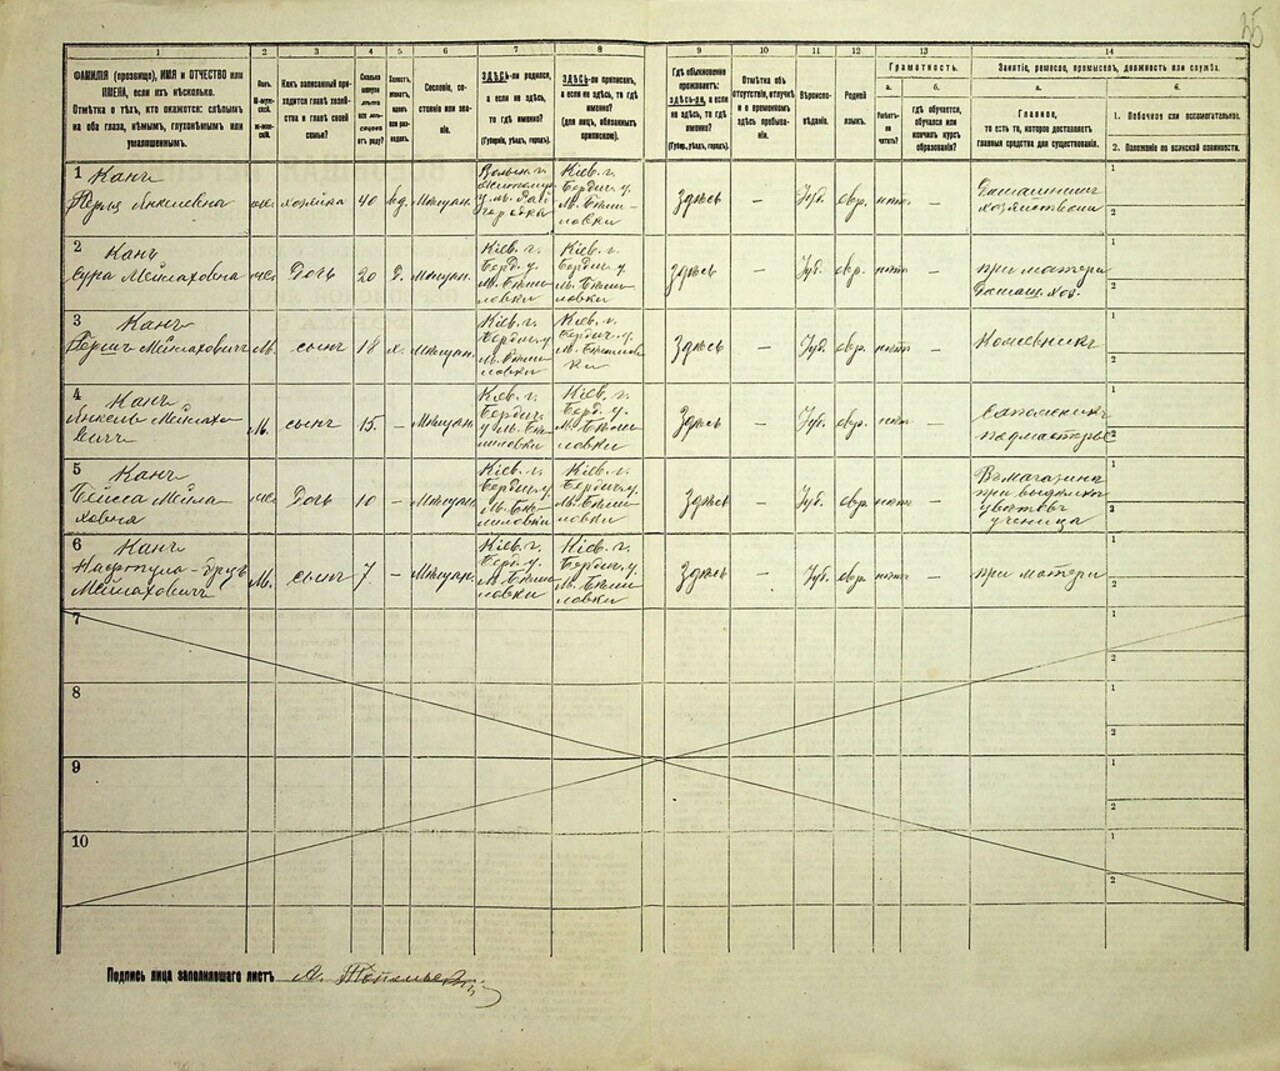 35
1 2 3 4 5. 6 7 8 9 10 11 12 13 14
ФАМИЛІЯ (прозвище), ИМЯ и ОТЧЕСТВО или ИМЕНА, если ихъ нѣсколько.
Отмѣтка о тѣхъ, кто окажется: слѣпымъ на оба глаза, нѣмымъ, глухонѣмымъ или умалишеннымъ.
Полъ.
М-мужской.
Ж-женскій.
Какъ записанный приходится главѣ хозяйства и главѣ своей семьи?
Сколько минуло лѣтъ или мѣсяцевъ отъ роду?
Холостъ, женатъ, вдовъ или разведенъ.
Сословіе, состояніе или званіе.
ЗДѢСЬ-ли родился, а если не здѣсь, то гдѣ именно?
(Губернія, уѣздъ, городъ).
ЗДѢСЬ-ли приписанъ, а если не здѣсь, то гдѣ именно?
(для лицъ, обязанныхъ припиской).
Гдѣ обыкновенно проживаетъ: здѣсь-ли, а если не здѣсь, то гдѣ именно?
(Губер., уѣздъ, городъ).
Отмѣтка объ отсутствіи, отлучкѣ и о временномъ здѣсь пребываніи.
Вѣроисповѣданіе.
Родной языкъ.
Грамотность.
а.
Умѣетъ-ли читать?
б.
гдѣ обучается, обучался или кончилъ курсъ образованія?
Занятіе, ремесло, промыселъ, должность или служба.
а.
Главное,
то есть то, которое доставляетъ главныя средства для существованія.
б.
1. Побочное или вспомогательное.
2. Положеніе по воинской повинности.
1 Канъ
Перля Янкелевна
же. хозяйка 40 вд. Мѣщан.
Волын. г.
Житомир.
у. м.
Кіев. г.
Бердич. у.
М. Бѣлиловки
Здѣсь — Іуд. евр. нѣтъ —
Домашним
хозяйством
1
2
2 Канъ
Сура Мейлаховна
же. Дочь 20 Д. Мѣщан.
Кіев. г.
Берд. у.
М. Бѣлиловки
Кіев. г.
Бердич. у.
М. Бѣлиловки
Здѣсь — Іуд. евр. нѣтъ —
при матери
Домаш. хоз.
1
2
3 Канъ
Гершъ Мейлаховичъ
М. сынъ 18 х. Мѣщан.
Кіев. г.
Бердич. у
М. Бѣлиловки
Кіев. г.
Бердич. у.
М. Бѣлиловки
Здѣсь — Іуд. евр. нѣтъ —
Кожевникъ
1
2
4 Канъ
Янкель Мейлахович
М. сынъ 15. — Мѣщан.
Кіев. г.
Бердич.
у М. Бѣлиловки
Кіев. г.
Берд. у.
М. Бѣлиловки
Здѣсь — Іуд. евр. нѣтъ —
Сапожникъ
подмастерье
1
2
5 Канъ
Бейла Мейлаховна
же. Дочь 10 — Мѣщан.
Кіев. г.
Бердич. у.
М. Бѣлиловки
Кіев. г.
Бердич. у.
М. Бѣлиловки
Здѣсь — Іуд. евр. нѣтъ —
Въ магазинѣ
при выдѣлкѣ
цвѣтовъ
ученица
1
2
6 Канъ
Мейлаховичъ
М. сынъ 7 — Мѣщан.
Кіев. г.
Берд. у.
М. Бѣлиловки
Кіев. г.
Бердич. у.
М. Бѣлиловки
Здѣсь — Іуд. евр. нѣтъ —
при матери
1
2
7
1
2
8
1
2
9
1
2
10
1
2
Подпись лица заполнившаго листъ А.